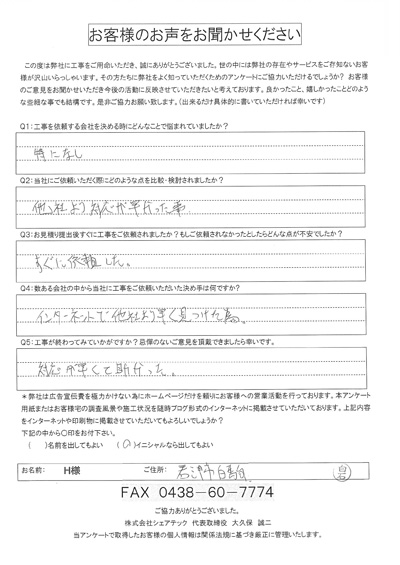 お客様のお声をお聞かせください
この度は弊社に工事をご用命いただき、誠にありがとうございました。世の中には弊社の存在やサービスをご存知ないお客
様が沢山いらっしゃいます。その方たちに弊社をよく知っていただくためのアンケートにご協力いただけるでしょうか？ お客様
のご意見をお聞かせいただき今後の活動に反映させていただきたいと考えております。良かったこと、嬉しかったことどのよう
な些細な事でも結構です。是非ご協力お願い致します。（出来るだけ具体的に書いていただければ幸いです）
Q1：工事を依頼する会社を決める時にどんなことで悩まれていましたか？
特になし
Q2：当社にご依頼いただく際にどのような点を比較・検討されましたか？
他社より対応が早かった事
Q3：お見積り提出後すぐに工事をご依頼されましたか？もしご依頼されなかったとしたらどんな点が不安でしたか？
すぐに依頼した。
Q4：数ある会社の中から当社に工事をご依頼いただいた決め手は何ですか？
インターネットで他社より早く見つけた為。
Q5：工事が終わってみていかがですか？忌憚のないご意見を頂戴できましたら幸いです。
対応が早くて助かった。
＊弊社は広告宣伝費を極力かけない為にホームページだけを頼りにお客様への営業活動を行っております。本アンケート
用紙またはお客様宅の調査風景や施工状況を随時ブログ形式のインターネットに掲載させていただいております。上記内容
をインターネットや印刷物に掲載させていただいてもよろしいでしょうか？
下記の中から〇印をお付下さい。
（ ）名前を出してもよい （〇）イニシャルなら出してもよい
お名前： H様 ご住所： 君津市
FAX 0438-60-7774
ご協力ありがとうございました。
株式会社シェアテック 代表取締役 大久保 誠二
当アンケートで取得したお客様の個人情報は関係法規に基づき厳正に管理いたします。